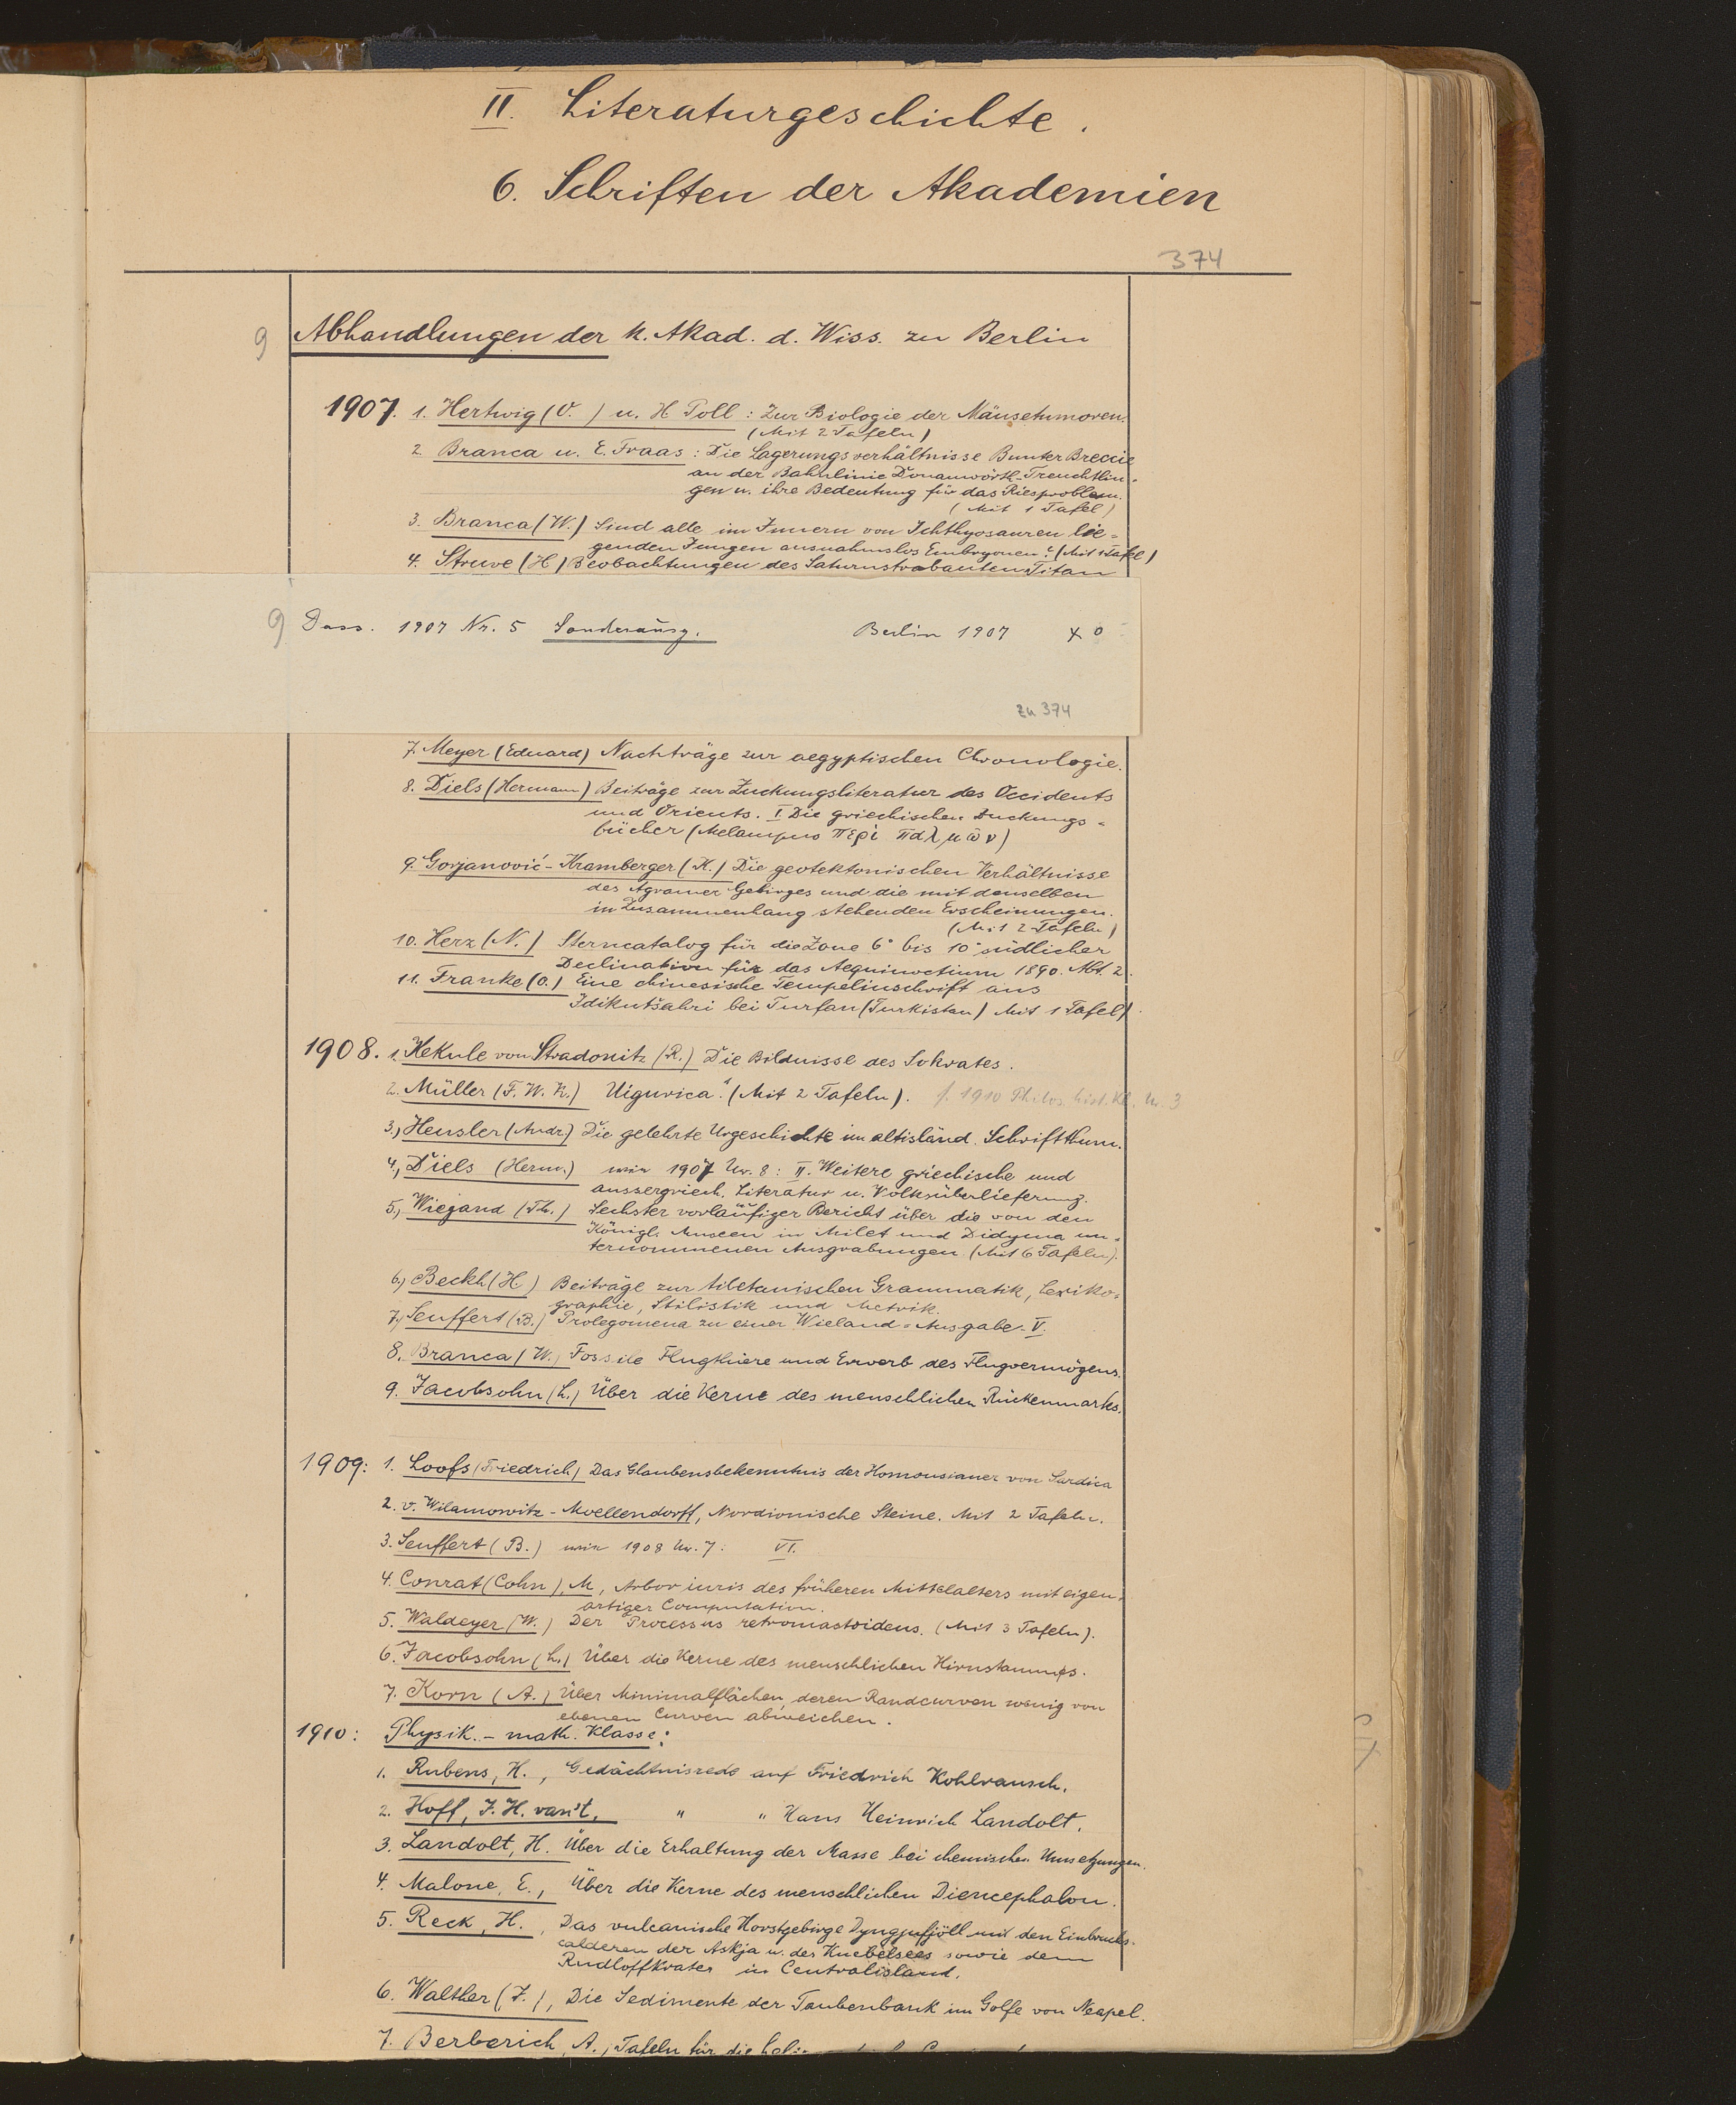 II. Literaturgeschichte.
6. Schriften der Akademien
374
9 Abhandlungen der K. Akad. d. Wiss. zu Berlin
1907. 1. Hertwig (O. ) u. H Poll : Zur Biologie der Mäusetumoren.
(Mit 2 Tafeln)
2. Branca u. E. Fraas : Die Lagerungsverhältnisse Bunter Breccie
an der Bahnlinie Donauwörth-Treuchtlin-
gen u. ihre Bedeutung für das Riesproblem.
(Mit 1 Tafel)
3. Branca (W.) Sind alle im Innern von Ichthyosauren lie-
genden Jungen ausnahmslos Embryonen? (Mit 1 Tafel)
4. Struve (H) Beobachtungen des Saturnstrabanten Titan
9 Dass. 1907 Nr. 5 Sonderausg. Berlin 1907 x o
zu 374
7. Meyer (Eduard) Nachträge zur aegyptischen Chronologie.
8. Diels (Hermann) Beiträge zur Zuckungsliteratur des Occidents
und Orients. I Die griechischen Zuckungs-
bücher (Melampus περὶ παλμῶν)
9. Gorjanović-Kramberger (K.) Die geotektonischen Verhältnisse
des Agramer Gebirges und die mit denselben
in Zusammenhang stehenden Erscheinungen.
(Mit 2 Tafeln)
10. Herz (N.) Sterncatalog für die Zone 6° bis 10° südlicher
Declination für das Aequinoctium 1890. Abt. 2.
11. Franke (O.) Eine chinesische Tempelinschrift aus
Idikutšahri bei Turfan (Turkistan) Mit 1 Tafel)
1908. 1. Kekule von Stradonitz (R.) Die Bildnisse des Sokrates.
2. Müller (F. W. K.) Uigurica. (Mit 2 Tafeln). f. 1910 Philos. hist. Kl. Nr. 3
3., Heusler (Andr.) Die gelehrte Urgeschichte im altisländ. Schrifttum.
4., Diels (Herm.) wie 1907 Nr. 8: II. Weitere griechische und
aussergriech. Literatur u. Volksüberlieferung.
5., Wiegand (Th.) Sechster vorläufiger Bericht über die von den
Königl. Museen in Milet und Didyma un-
ternommenen Ausgrabungen (Mit 6 Tafeln).
6., Beckh (H) Beiträge zur tibetanischen Grammatik, Lexiko-
graphie, Stilistik und Metrik.
7., Seuffert (B.) Prolegomena zu einer Wieland-Ausgabe. V.
8. Branca (W.) Fossile Flugthiere und Erwerb des Flugvermögens.
9. Jacobsohn (L.) Über die Kerne des menschlichen Rückenmarks.
1909: 1. Loofs (Friedrich) Das Glaubensbekenntnis der Homousianer von Sardica
2. v. Wilamowitz-Moellendorff, Nordionische Steine. Mit 2 Tafeln.
3. Seuffert (B.) wie 1908 Nr. 7: VI.
4. Conrat (Cohn), M, Arbor iuris des früheren Mittelalters mit eigen-
artiger Computation.
5. Waldeyer (W.) Der Processus retromastoideus. (Mit 3 Tafeln).
6. Jacobsohn (L.) Über die Kerne des menschlichen Hirnstammes.
7. Korn (A.) Über Minimalflächen, deren Randcurven wenig von
ebenen Curven abweichen.
1910: Physik.-math. Klasse:
1. Rubens, H., Gedächtnisrede auf Friedrich Kohlrausch.
2. Hoff, J. H. van't, " " Hans Heinrich Landolt.
3. Landolt, H. Über die Erhaltung der Masse bei chemischen Umsetzungen.
4. Malone, E., Über die Kerne des menschlichen Diencephalon.
5. Reck, H., Das vulcanische Horstgebirge Dyngjufjöll mit den Einbruchs-
calderen der Askja u. des Knebelsees sowie dem
Rudloffkrater in Centralisland.
6. Walther (J.), Die Sedimente der Taubenbank im Golfe von Neapel.
7. Berberich, A., Tafeln für die